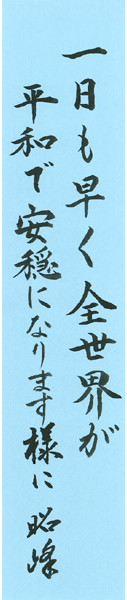 一日も早く全世界が
平和で安穏になります様に 昭峰